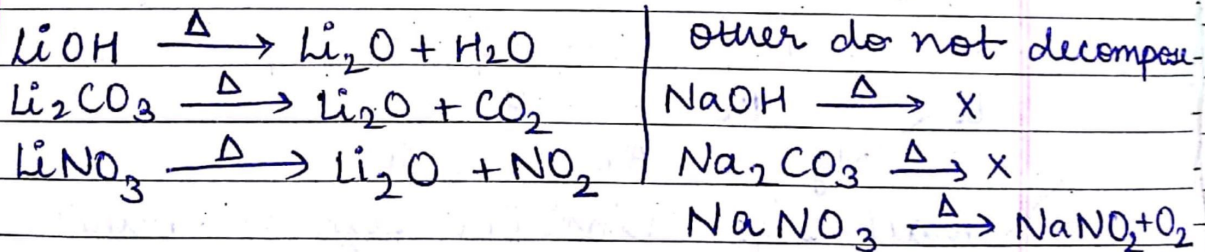 LiOH —Δ→ Li₂O + H₂O
Li₂CO₃ —Δ→ Li₂O + CO₂
LiNO₃ —Δ→ Li₂O + NO₂
other do not decompose-
NaOH —Δ→ X
Na₂CO₃ —Δ→ X
NaNO₃ —Δ→ NaNO₂+O₂